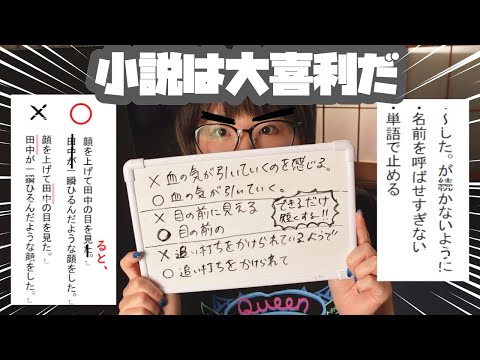 小説は大喜利だ
×
○
顔を上げて田中の目を見た。
田中が一瞬ひるんだような顔をした。
顔を上げて田中の目を見た。
ると、
田中が一瞬ひるんだような顔をした。
・~した。が続かないように
・名前を呼ばせすぎない
・単語で止める
×血の気が引いていくのを感じる。
○血の気が引いていく。
×目の前に見える
○目の前の
できるだけ
短くする!!
×追い打ちをかけられているようで
○追い打ちをかけられて
Queen